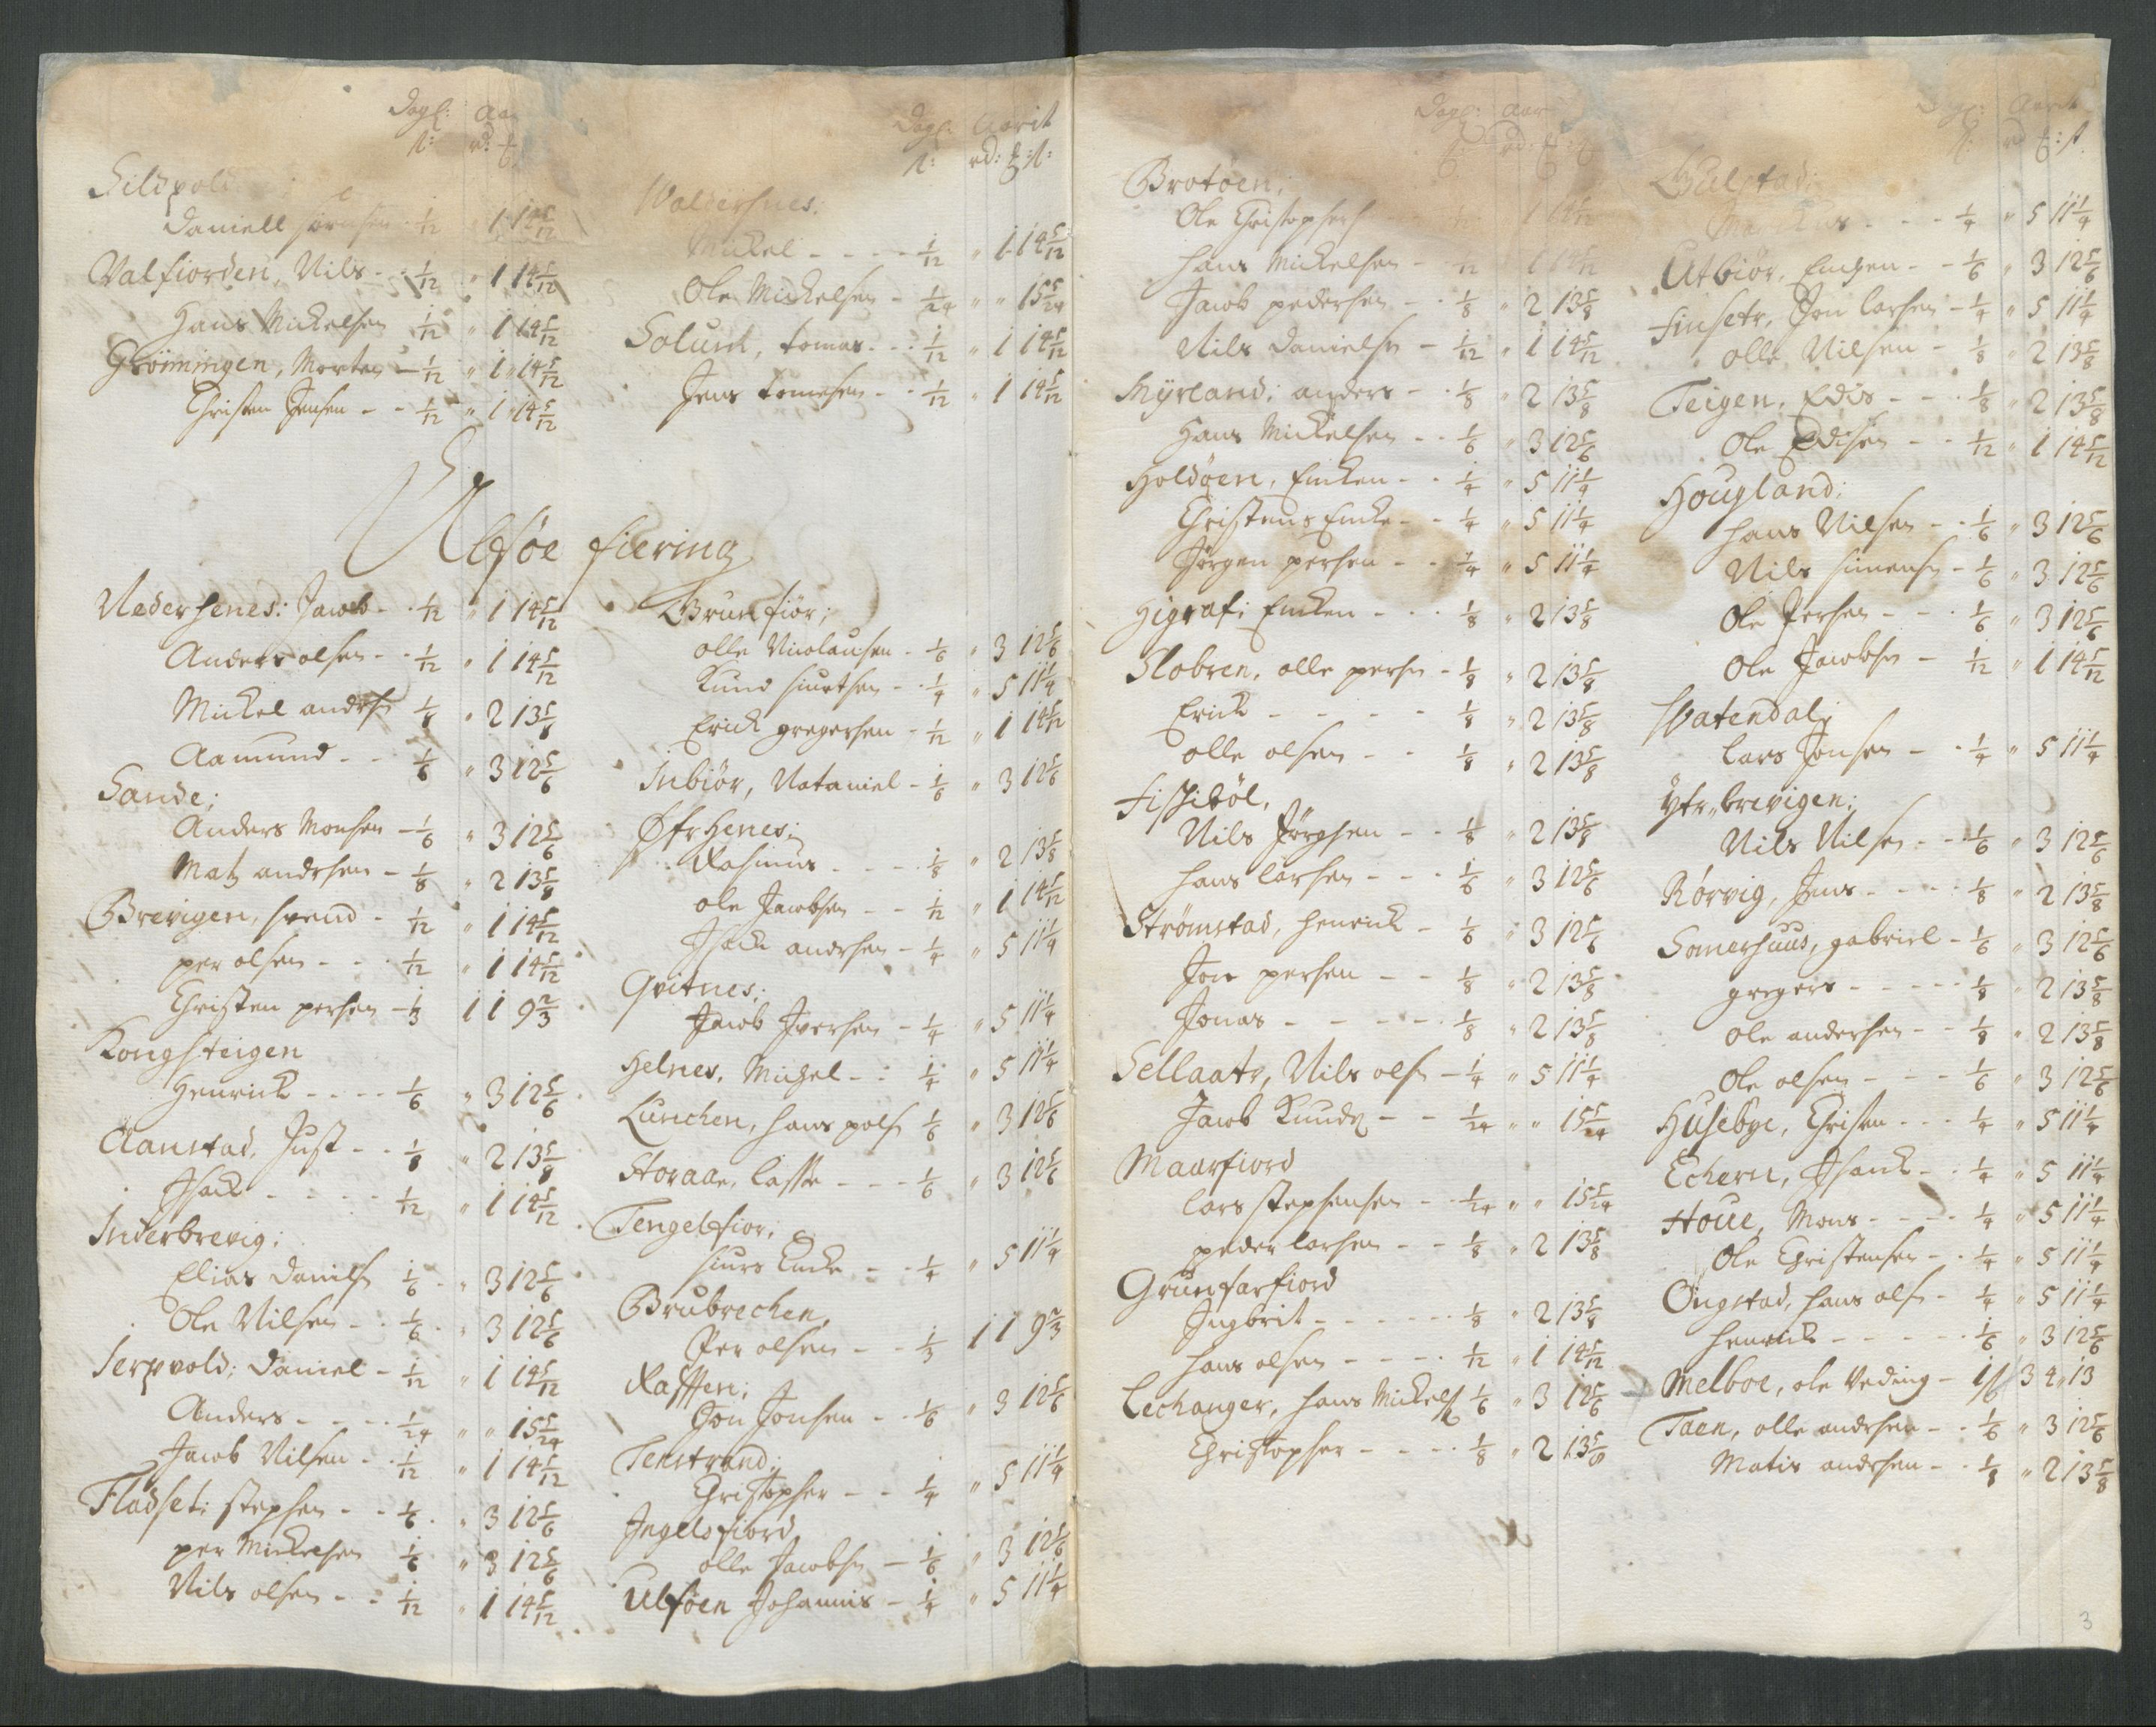 Dagl: Aar
ſ: rd: ₰
Sildpold:
Daniell sørensen 1/12 " 1 14 5/12
Valfiorden, Nils - - 1/12 " 1 14 5/12
Hans Mickelsen 1/12 " 1 14 5/12
Grøningen, Morten - 1/12 " 1 14 5/12
Christen Jensen - - 1/12 " 1 14 5/12
Dagl: Aarit
ſ: rd: ₰: ſ:
Waldershnes:
Mickel - - - - 1/12 " 1 14 5/12
Ole Mickelsen - 1/24 " " 15 5/24
Solum, tomas - - - 1/12 " 1 14 5/12
Jens tomesen - - 1/12 " 1 14 5/12
Ulfsøe fiering
Nedershenes: Jacob - - 1/12 " 1 14 5/12
Anders olsen - - 1/12 " 1 14 5/12
Mickel andrs 1/8 " 2 13 5/8
Aamund - - 1/6 " 3 12 5/6
Sande;
Anders Monsen - 1/6 " 3 12 5/6
Matz andrsen - 1/8 " 2 13 5/8
Brevigen, svend - 1/12 " 1 14 5/12
per olsen - - - 1/12 " 1 14 5/12
Christen persen - 1/3 1 1 9 2/3
Kongsteigen
Henrick - - - - 1/6 " 3 12 5/6
Aanstad, Just - - 1/8 " 2 13 5/8
Isack - - - - - 1/12 " 1 14 5/12
Inderbrevig;
Elias daniels 1/6 - " 3 12 5/6
Ole Nilsen - - 1/6 " 3 12 5/6
Serpvold; Daniel - 1/12 " 1 14 5/12
Anders - - - - 1/24 " " 15 5/24
Jacob Nilsen - - 1/12 " 1 14 5/12
Fladset: stephen - - 1/6 " 3 12 5/6
per Mickelsen 1/6 " 3 12 5/6
Nils olsen - - 1/12 " 1 14 5/12
Brunfiør;
olle Nicolausen - 1/6 " 3 12 5/6
Knud siurtsen - - 1/4 " 5 11 1/4
Erick gregersen - 1/12 " 1 14 5/12
Inbiør, Nataniel - 1/6 " 3 12 5/6
Øfrhenes;
Rasmus - - - - 1/8 " 2 13 5/8
ole Jacobsen - - 1/12 " 1 14 5/12
Isack andrsen - 1/4 " 5 11 1/4
Qvitnes;
Jacob Iversen - 1/4 " 5 11 1/4
Helnes, Michel - : 1/4 " 5 11 1/4
Lunchen, Hans pols 1/6 " 3 12 5/6
Storaae, Lasse - - - 1/6 " 3 12 5/6
Tengelfior;
siurs Encke - - - 1/4 " 5 11 1/4
Brubrechen,
Per olsen - - 1/3 1 1 9 2/3
Rafften;
Jon Jonsen - - 1/6 " 3 12 5/6
Tenstrand;
Christopher - - 1/4 " 5 11 1/4
Ingelsfiord,
olle Jacobsn - 1/6 " 3 12 5/6
Ulføen Johannis - 1/4 " 5 11 1/4
Dagl: Aar
ſ: rd: ₰: ſ
Brotøen;
Ole Christophers 1/12 1 14 5/12
Hans Mickelsen - 1/12 1 14 5/12
Jacob pedersen - - 1/8 " 2 13 5/8
Nils Danielsn - 1/12 " 1 14 5/12
Myrland; anders - - 1/8 " 2 13 5/8
Hans Mickelsen - - 1/6 " 3 12 5/6
Holdøen, Encken - - 1/4 " 5 11 1/4
Christens Encke - - 1/4 " 5 11 1/4
Jørgen persen - - 1/4 " 5 11 1/4
Higraf; Encken - - - 1/8 " 2 13 5/8
Slobren, olle persn - 1/8 " 2 13 5/8
Erick - - - - 1/8 " 2 13 5/8
olle olsen - - 1/8 " 2 13 5/8
Fischbøl,
Nils Jørgsen - - 1/8 " 2 13 5/8
Hans larsen - - - 1/6 " 3 12 5/6
Strømstad, Henrick - 1/6 " 3 12 5/6
Jon persen - - 1/8 " 2 13 5/8
Jonas - - - - - 1/8 " 2 13 5/8
Sellaatr, Nils olsn - 1/4 " 5 11 1/4
Jacob Knuds - - 1/24 " " 15 5/24
Maarfiord
lars stephensen - - 1/24 " " 15 5/24
peder larsen - - 1/8 " 2 13 5/8
Grunfarfiord
Ingbrit - - - - - - 1/8 " 2 13 5/8
Hans olsen - - - - 1/12 " 1 14 5/12
Lechanger, Hans Mickels 1/6 " 3 12 5/6
Christopher - - - - 1/8 " 2 13 5/8
Dagl: Aarit
ſ: rd ₰: ſ:
Hulstad;
Marckus - - - 1/4 " 5 11 1/4
Utbiør, Encken - - 1/6 " 3 12 5/6
Finsetr, Jon larsen - 1/4 " 5 11 1/4
olle Nilsen - 1/8 " 2 13 5/8
Teigen, Edis - - - 1/8 " 2 13 5/8
Ole Edisen - - 1/12 " 1 14 5/12
Hougland;
Hans Nilsen - - 1/6 " 3 12 5/6
Nils simensn - 1/6 " 3 12 5/6
Ole Persen - - - 1/6 " 3 12 5/6
Ole Jacobsn - 1/12 " 1 14 5/12
Watendal;
lars Jonsen - - 1/4 " 5 11 1/4
Ytr, brevigen;
Nils Nilsen - - 1/6 " 3 12 5/6
Rørvig, Jens - - - - 1/8 " 2 13 5/8
Somershuus, gabriel - 1/6 " 3 12 5/6
gregers - - - - - 1/8 " 2 13 5/8
ole andersen - - 1/8 " 2 13 5/8
Ole olsen - - - - 1/6 " 3 12 5/6
Husebye, Christen - - - 1/4 " 5 11 1/4
Echern, Isack - - 1/4 " 5 11 1/4
Houe, Mons - - - - 1/4 " 5 11 1/4
Ole Christensen - - 1/4 " 5 11 1/4
Ongstad, Hans olsn - 1/4 " 5 11 1/4
Henrick - - - - - 1/6 " 3 12 5/6
Melboe, ole Veding - 1 ſ 3 4 " 13
Taen, olle andrsen - - 1/6 " 3 12 5/6
Matis andrsen - - 1/8 " 2 13 5/8
3